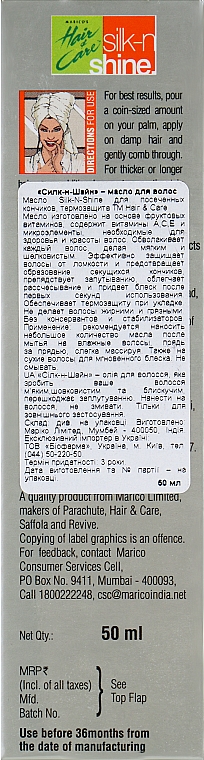 MARICO'S
Hair & Care
silk-n
shine
DIRECTIONS FOR USE
For best results, pour
a coin-sized amount
on your palm, apply
on damp hair and
gently comb through.
For thicker or longer
«Силк-н-Шайн» – масло для волос
Масло Silk-N-Shine для посеченных
кончиков, термозащита ТМ Hair & Care
Масло изготовлено на основе фруктовых
витаминов, содержит витамины A,C,E и
микроэлементы, необходимые для
здоровья и красоты волос. Обволакивает
каждый волос, делая мягким и
шелковистым. Эффективно защищает
волосы от ломкости и предотвращает
образование секущихся кончиков,
препятствует запутыванию, облегчает
расчесывание и придает блеск после
первых секунд использования.
Обеспечивает термозащиту при укладке.
Не делает волосы жирными и грязными.
Без консервантов и стабилизаторов.
Применение: рекомендуется наносить
небольшое количество масла после
мытья на влажные волосы, прядь
за прядью, слегка массируя. Также на
сухие волосы для мгновенного блеска. Не
смывать.
UA «Силк-н-Шайн» – олія для волосся, яке
зробить ваше волосся
м'яким,шовковистим та блискучим,
перешкоджає заплутуванню. Нанести на
волосся, не змивати. Тільки для
зовнішнього застосування.
Склад: див. на упаковці. Виготовлено:
Маріко Лімітед, Мумбей - 400050, Індія
Ексклюзивний імпортер в Україні:
ТОВ «Біофарма», Україна, м. Київ, тел.
(044) 50-220-50
Термін придатності: 3 роки.
Дата виготовлення та № партії – на
упаковці.
50 мл
A quality product from Marico Limited,
makers of Parachute, Hair & Care,
Saffola and Revive.
Copying of label graphics is an offence.
For feedback, contact Marico
Consumer Services Cell,
PO Box No. 9411, Mumbai - 400093,
Call 1800222248, csc@maricoindia.net
Net Qty.: 50 ml
MRP₹
(Incl. of all taxes) See
Mfd. Top Flap
Batch No.
Use before 36months from
the date of manufacturing